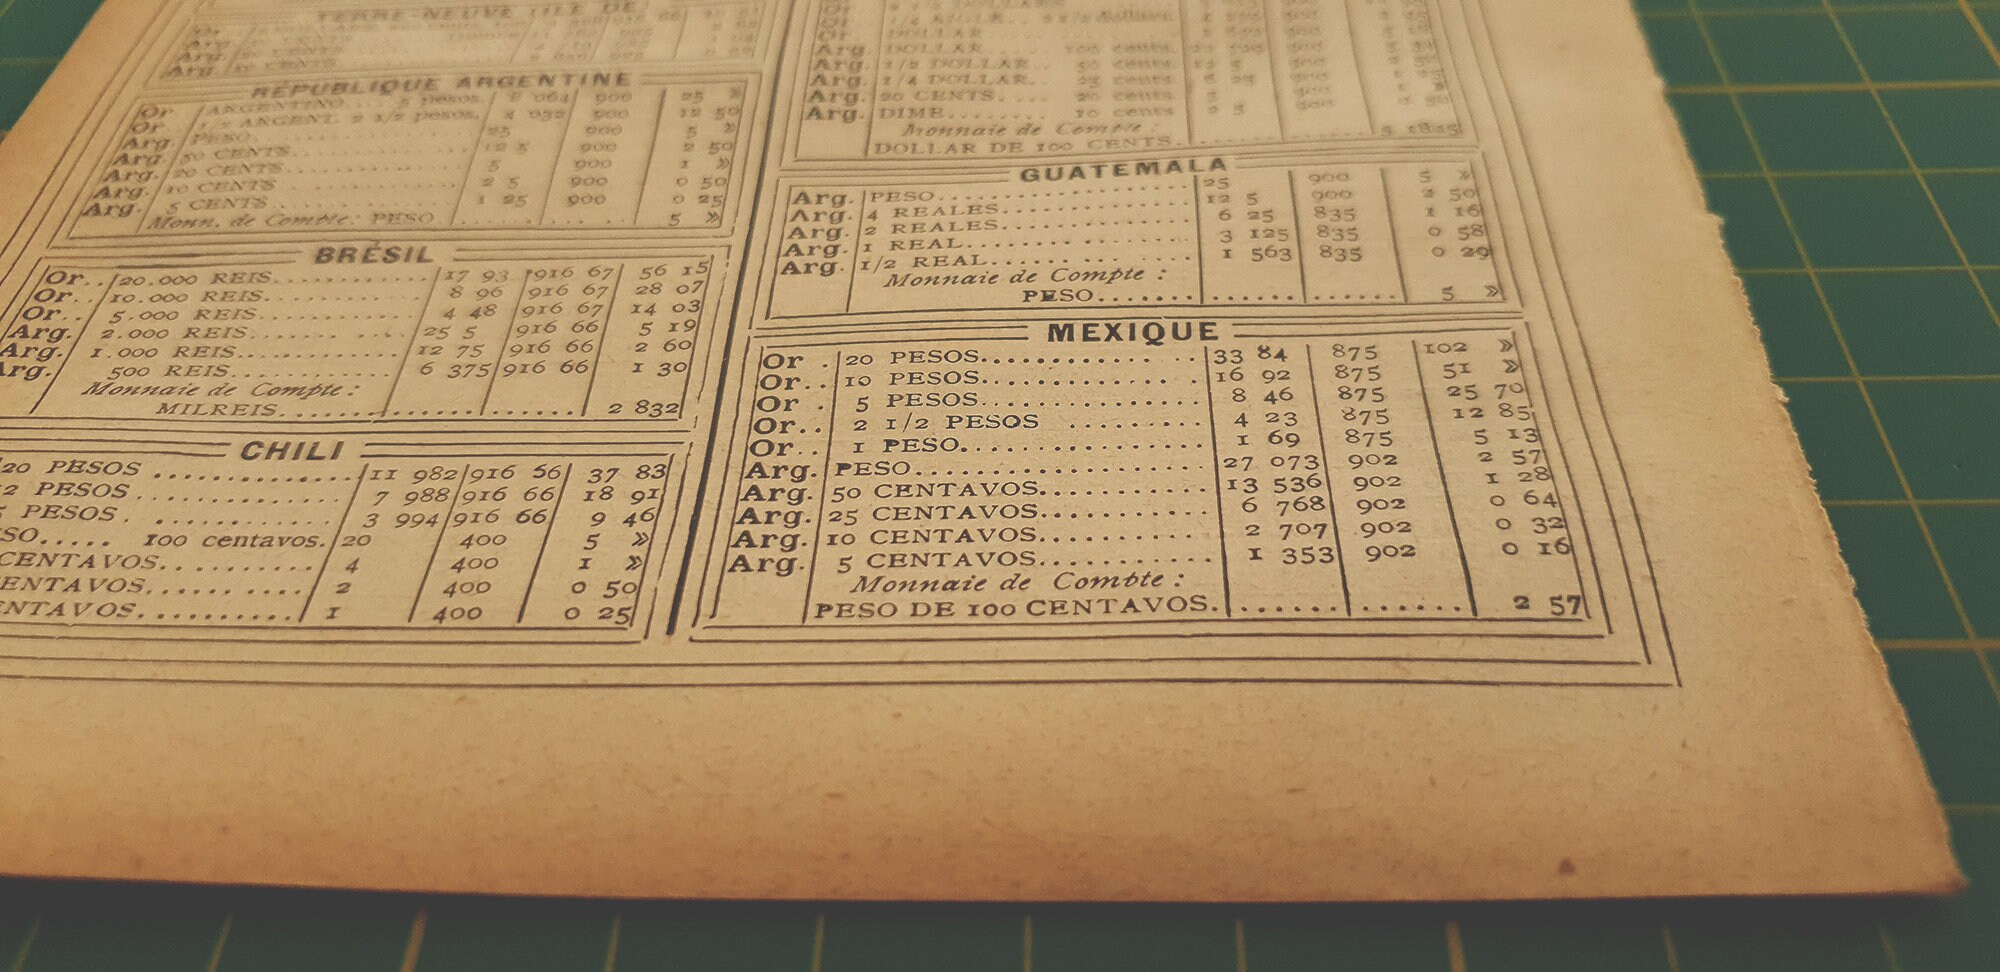 TERRE-NEUVE (ILE DE
RÉPUBLIQUE ARGENTINE
Or ARGENTINO... 5 pesos. 8 064 900 25 »
Or 1/2 ARGENT. 2 1/2 pesos. 4 032 900 12 50
Arg. PESO. 25 900 5 »
Arg. 50 CENTS. 12 5 900 2 50
Arg. 20 CENTS. 5 900 1 »
Arg. 10 CENTS 2 5 900 0 50
Arg. 5 CENTS 1 25 900 0 25
Monn. de Compte: PESO 5 »
BRÉSIL
Or.. 20.000 REIS. 17 93 916 67 56 15
Or.. 10.000 REIS. 8 96 916 67 28 07
Or.. 5.000 REIS. 4 48 916 67 14 03
Arg. 2.000 REIS. 25 5 916 66 5 19
Arg. 1.000 REIS. 12 75 916 66 2 60
Arg. 500 REIS. 6 375 916 66 1 30
Monnaie de Compte:
MILREIS. 2 832
CHILI
20 PESOS 11 982 916 56 37 83
2 PESOS 7 988 916 66 18 91
5 PESOS. 3 994 916 66 9 46
SO..... 100 centavos. 20 400 5 »
CENTAVOS. 4 400 1 »
ENTAVOS. 2 400 0 50
NTAVOS. 1 400 0 25
DOLLARS
Or DOLLAR
Arg. DOLLAR 100 cents.
Arg. 1/2 DOLLAR. 50 cents
Arg. 1/4 DOLLAR. 25 cents
Arg. 20 CENTS. 20 cents
Arg. DIME. 10 cents
Monnaie de Compte:
DOLLAR DE 100 CENTS. 5 1825
GUATEMALA
Arg. PESO. 25 900 5 »
Arg. 4 REALES. 12 5 900 2 50
Arg. 2 REALES. 6 25 835 1 16
Arg. 1 REAL. 3 125 835 0 58
Arg. 1/2 REAL. 1 563 835 0 29
Monnaie de Compte :
PESO. 5 »
MEXIQUE
Or . 20 PESOS. 33 84 875 102 »
Or.. 10 PESOS. 16 92 875 51 »
Or . 5 PESOS. 8 46 875 25 70
Or.. 2 1/2 PESOS 4 23 875 12 85
Or.. 1 PESO. 1 69 875 5 13
Arg. PESO. 27 073 902 2 57
Arg. 50 CENTAVOS. 13 536 902 1 28
Arg. 25 CENTAVOS. 6 768 902 0 64
Arg. 10 CENTAVOS. 2 707 902 0 32
Arg. 5 CENTAVOS. 1 353 902 0 16
Monnaie de Compte :
PESO DE 100 CENTAVOS. 2 57